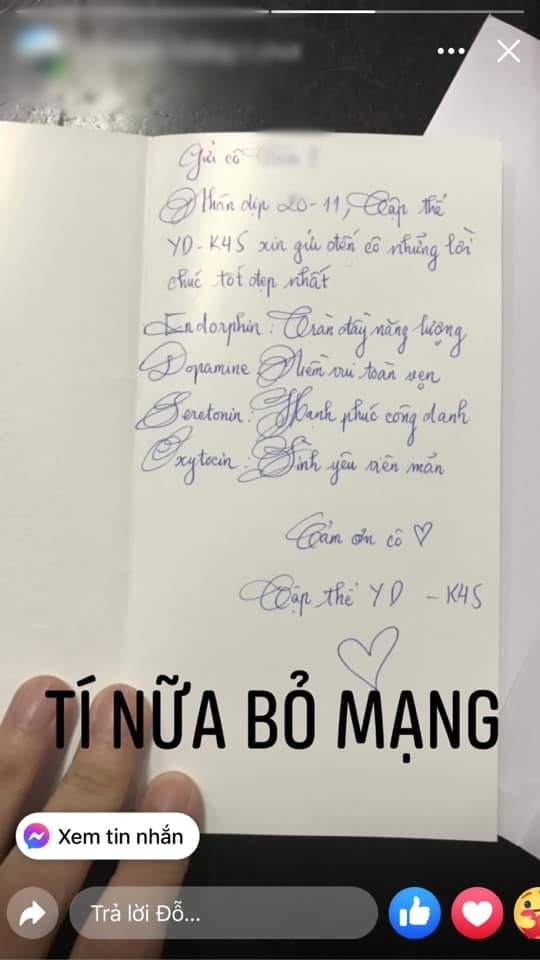 Gửi cô
Nhân dịp 20-11, Tập thể
YD-K45 xin gửi đến cô những lời
chúc tốt đẹp nhất
Endorphin: Tràn đầy năng lượng
Dopamine Niềm vui toàn vẹn
Seretonin: Hạnh phúc công danh
Oxytocin: Tình yêu viên mãn
Cảm ơn cô ♡
Tập thể YD - K45
♡
TÍ NỮA BỎ MẠNG
Xem tin nhắn
Trả lời Đỗ...